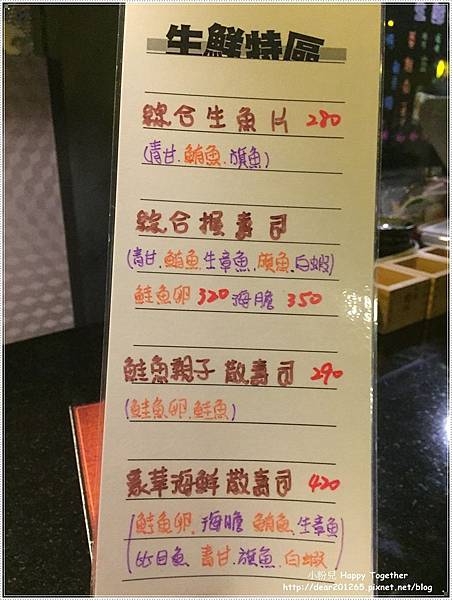 生鮮特區
綜合生魚片 280
(青甘.鮪魚.旗魚)
綜合握壽司
(青甘.鮪魚生章魚.旗魚.白蝦)
鮭魚卵 320 海膽 350
鮭魚親子散壽司 290
(鮭魚卵.鮭魚)
豪華海鮮散壽司 420
(鮭魚卵.海膽 鮪魚.生章魚
比目魚 青甘.旗魚.白蝦)
小粉兒 Happy Together
http://dear201265.pixnet.net/blog